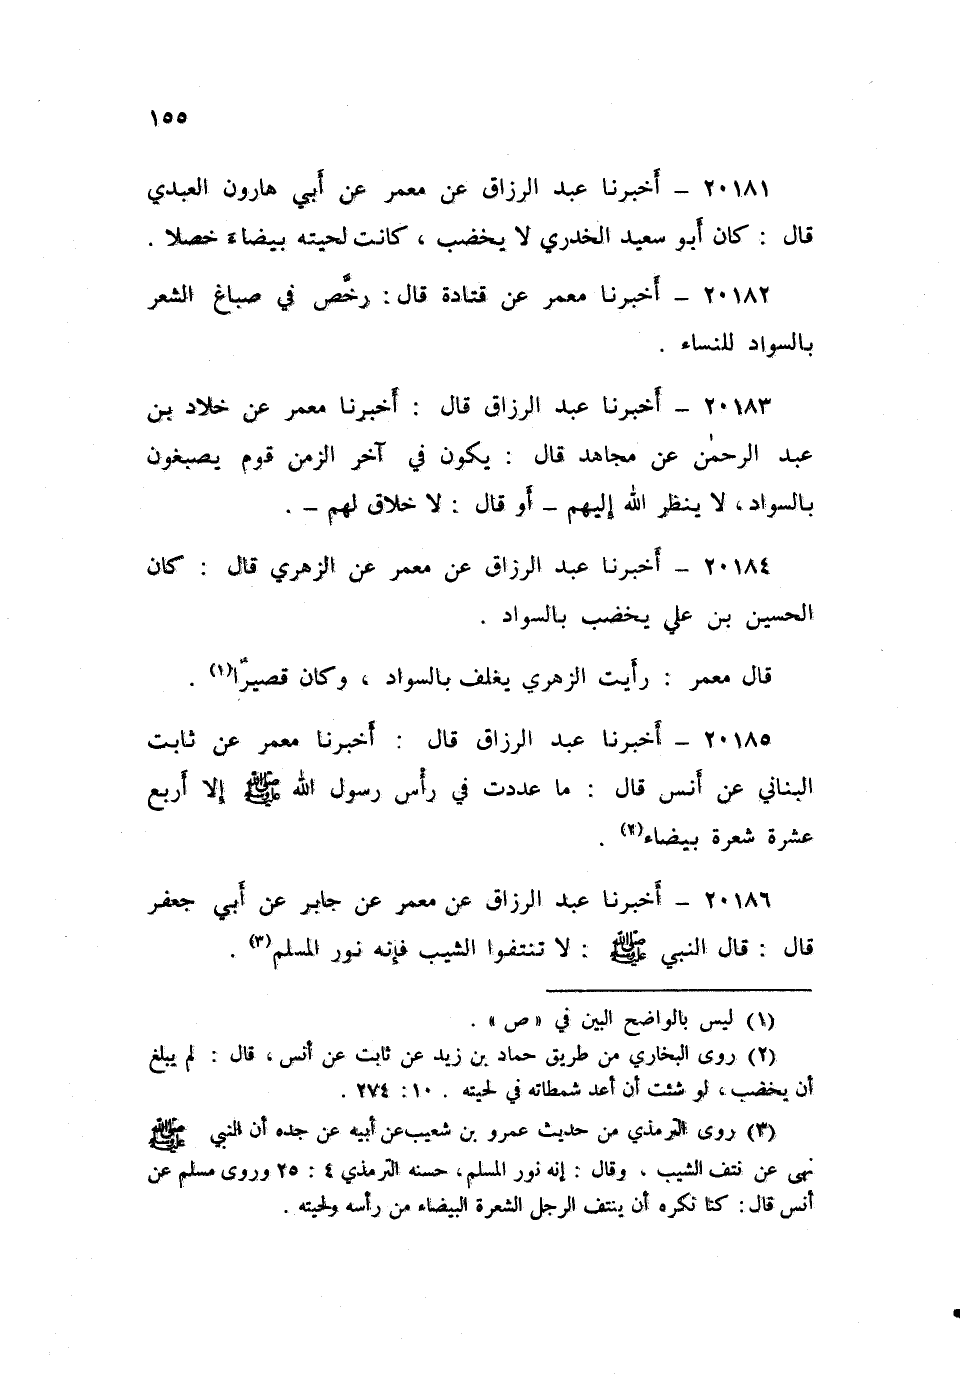 ١٥٥
٢٠١٨١ – أخبرنا عبد الرزاق عن معمر عن أبي هارون العبدي
قال : كان أبو سعيد الخدري لا يخضب ، كانت لحيته بيضاء خصلا .
٢٠١٨٢ – أخبرنا معمر عن قتادة قال : رخَّص في صباغ الشعر
بالسواد للنساء .
٢٠١٨٣ – أخبرنا عبد الرزاق قال : أخبرنا معمر عن خلاد بن
عبد الرحمٰن عن مجاهد قال : يكون في آخر الزمن قوم يصبغون
بالسواد ، لا ينظر الله إليهم – أو قال : لا خلاق لهم – .
٢٠١٨٤ – أخبرنا عبد الرزاق عن معمر عن الزهري قال : كان
الحسين بن علي يخضب بالسواد .
قال معمر : رأيت الزهري يغلف بالسواد ، وكان قصيرًا(١) .
٢٠١٨٥ – أخبرنا عبد الرزاق قال : أخبرنا معمر عن ثابت
البناني عن أنس قال : ما عددت في رأس رسول الله ﷺ إلا أربع
عشرة شعرة بيضاء(٢) .
٢٠١٨٦ – أخبرنا عبد الرزاق عن معمر عن جابر عن أبي جعفر
قال : قال النبي ﷺ : لا تنتفوا الشيب فإنه نور المسلم(٣) .
(١) ليس بالواضح البين في « ص » .
(٢) روى البخاري من طريق حماد بن زيد عن ثابت عن أنس ، قال : لم يبلغ
أن يخضب ، لو شئت أن أعد شمطاته في لحيته . ١٠ : ٢٧٤ .
(٣) روى الترمذي من حديث عمرو بن شعيب عن أبيه عن جده أن النبي ﷺ
نهى عن نتف الشيب ، وقال : إنه نور المسلم ، حسنه الترمذي ٤ : ٢٥ وروى مسلم عن
أنس قال : كنا نكره أن ينتف الرجل الشعرة البيضاء من رأسه ولحيته .